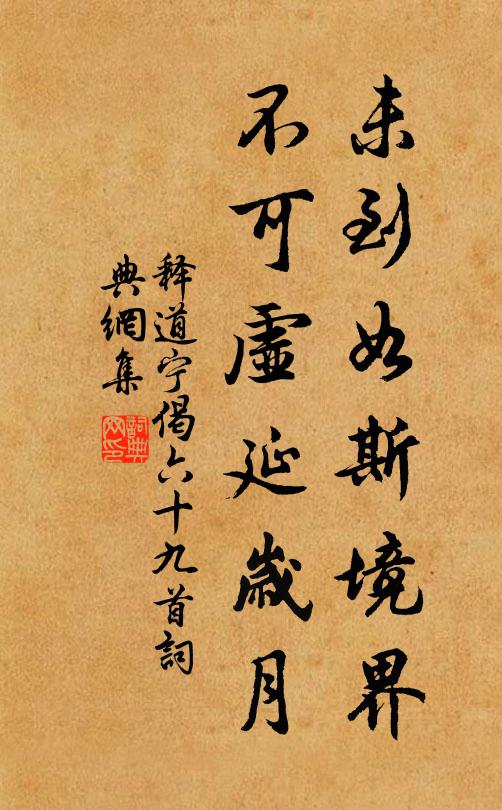 未到如斯境界
不可虚延歲月
释道宁偈六十九首詞
典網集
詞典
网印